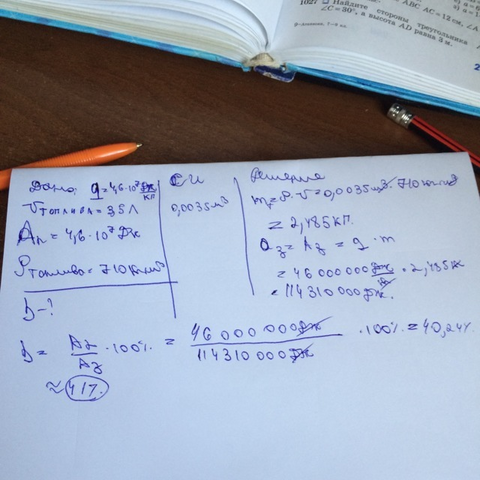 1027 Найдите стороны треугольника
ABC AC = 12 см, ∠A
∠C = 30°, а высота AD равна 3 м.
Дано: q = 4,6·10⁷ Дж/кг
Vтоплива = 3,5 л
Aп = 4,6·10⁷ Дж
ρтопливо = 710 кг/м³
η - ?
СИ
0,0035 м³
Решение
m = ρ·V = 0,0035 м³·710 кг/м³
= 2,485 кг.
Qз = Aз = q·m
= 46000000 Дж/кг · 2,485 кг
= 114310000 Дж.
η = Aп/Aз ·100% = 46 000 000 Дж/114310 000 Дж ·100% = 40,24%
≈ 41%.